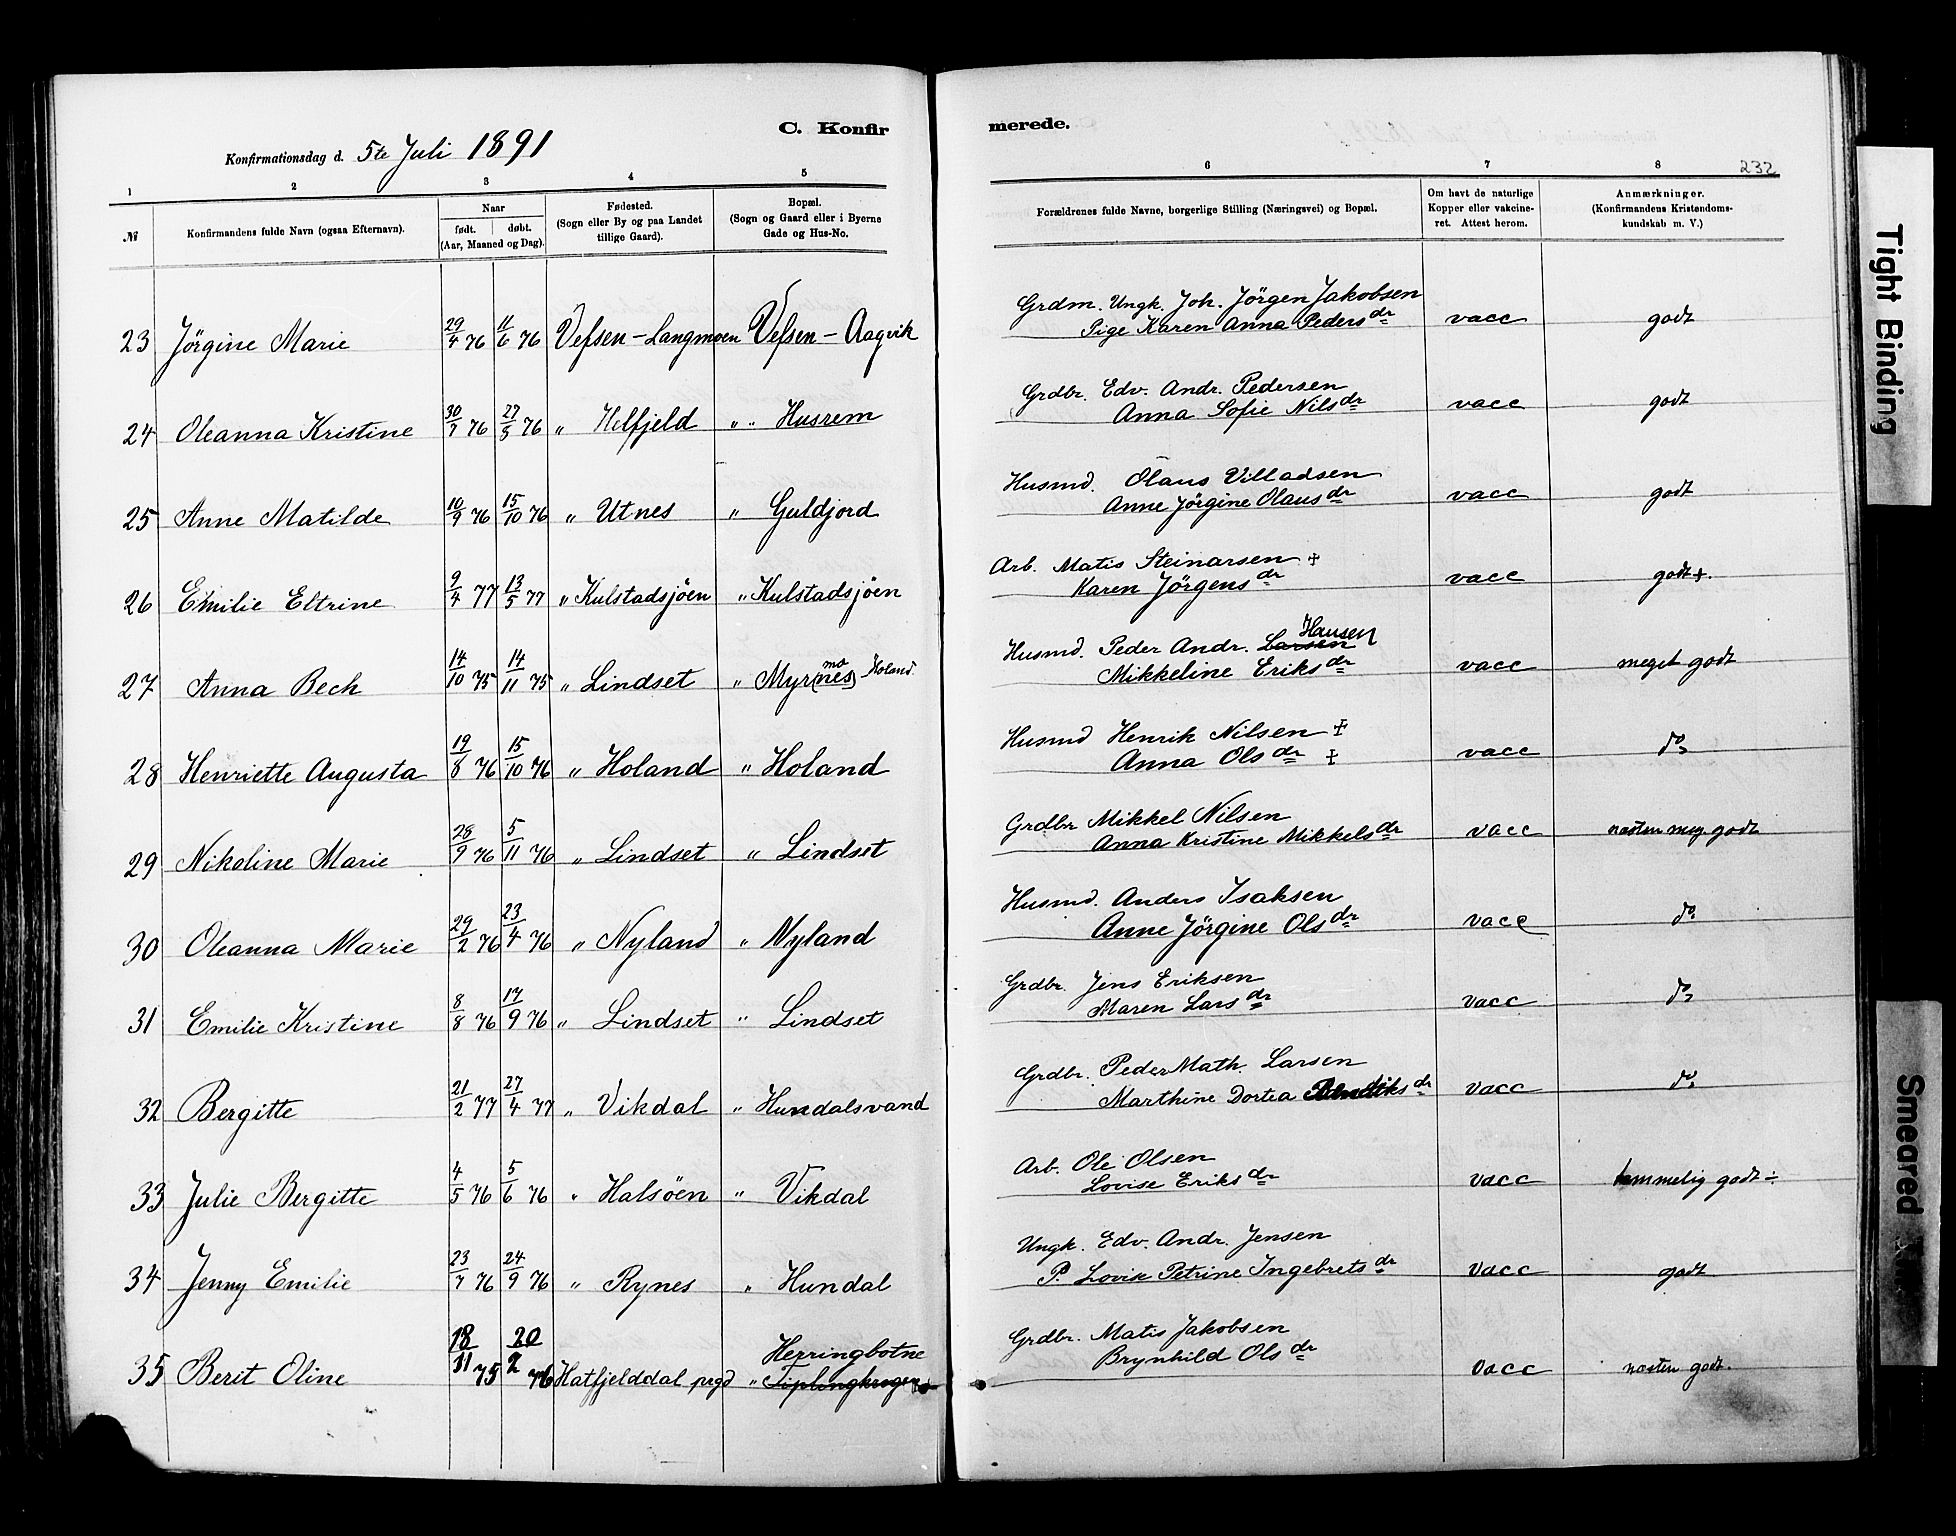 C. Konfirmerede.
Konfirmationsdag d. 5te Juli 1891
232
1 2 3 4 5 6 7 8
№ Konfirmandens fulde Navn (ogsaa Efternavn). Naar født. døbt. (Aar, Maaned og Dag). Fødested. (Sogn eller By og paa Landet tillige Gaard). Bopæl. (Sogn og Gaard eller i Byerne Gade og Hus-No. Forældrenes fulde Navne, borgerlige Stilling (Næringsvei) og Bopæl. Om havt de naturlige Kopper eller vakcineret. Attest herom. Anmærkninger. (Konfirmandens Kristendomskundskab m. V.)
23 Jörgine Marie 29/4 76 11/6 76 Vefsen - Langmoen Vefsen - Aagvik Grdm. Ungk. Joh. Jörgen Jakobsen
Pige Karen Anna Pedersdr vacc godt
24 Oleanna Kristine 30/7 76 27/5 76 " Helfjeld " " Husrem Grdbr. Edv. Andr. Pedersen
Anna Sofie Nilsdr vacc godt
25 Anne Matilde 10/9 76 15/10 76 " Utnes " Guldjord Husmd. Olaus Villadsen
Anne Jörgine Olausdr vacc godt
26 Emilie Eltrine 9/4 77 13/5 77 " Kulstadsjöen " Kulstadsjöen Arb. Matis Steinarsen +
Karen Jörgensdr vacc godt +.
27 Anna Bech 14/10 75 14/11 75 " Lindset " Myr(nes) mo Holand. Husmd. Peder Andr. Larsen Hansen
Mikkeline Eriksdr vacc meget godt
28 Henriette Augusta 19/8 76 15/10 76 " Holand " Holand Husmd Henrik Nilsen +
Anna Olsdr + vacc do
29 Nikoline Marie 28/9 76 5/11 76 " Lindset " Lindset Grdbr Mikkel Nilsen
Anna Kristine Mikkelsdr vacc næsten meg godt
30 Oleanna Marie 29/2 76 23/4 76 " Nyland " Nyland Husmd. Anders Isaksen
Anne Jörgine Olsdr vacc do
31 Emilie Kristine 8/8 76 17/9 76 " Lindset " Lindset Grdbr. Jens Eriksen
Maren Larsdr vacc do
32 Bergitte 21/2 77 27/4 77 " Vikdal " Hundalsvand Grdbr. Peder Math. Larsen
Marthine Dortea Bendiksdr vacc do
33 Julie Bergitte 4/5 76 5/6 76 " Halsöen " Vikdal Arb. Ole Olsen
Lovise Eriksdr vacc temmelig godt ÷
34 Jenny Emilie 23/7 76 24/9 76 " Rynes " Hundal Ungk. Edv. Andr. Jensen
P. Lovise Petrine Ingebretsdr vacc godt
35 Berit Oline 18/11 75 20/2 76 Hatfjelddal prgd " Herringbotne Tiplingkrogen Grdbr. Matis Jakobsen
Brynhild Olsdr vacc næsten godt.
Tight Binding
Smeared